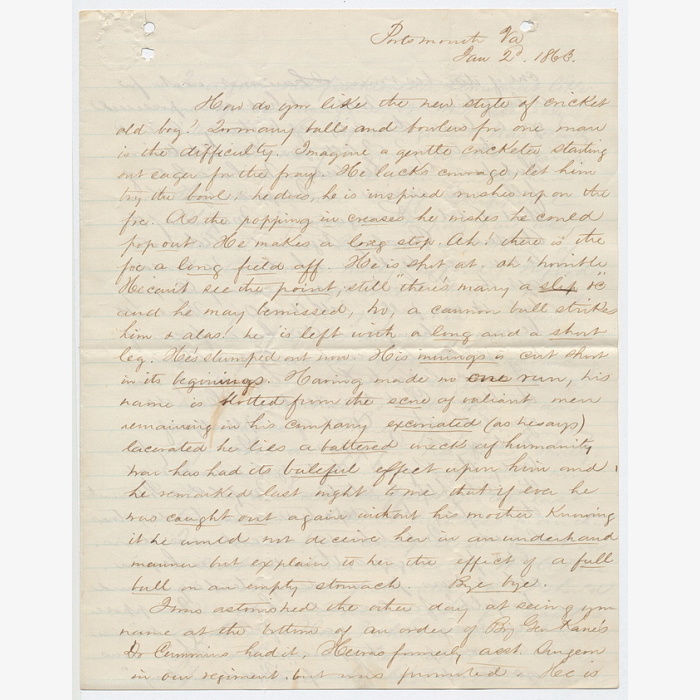 Portsmouth Va
Jan 2d. 1863.
How do you like the new style of cricket
old boy? Too many balls and bowlers for one man
is the difficulty. Imagine a gentle cricketer starting
out eager for the fray. He lacks courage, let him
try the bowl, he does, he is inspired rushes upon the
foe. As the popping in creases he wishes he could
pop out. He makes a long stop. Ah! there is the
foe a long field off. He is shot at, oh! horrible
He cant see the point, still "there's many a slip &c"
and he may be missed, no, a cannon ball strikes
him & alas! he is left with a long and a short
leg. He's stumped out now. His innings is cut short
in its beginnings. Having made no one run, his
name is blotted from the score of valiant men
remaining in his company excoriated (as he says)
lacerated he lies a battered wreck of humanity
war has had its baleful effect upon him and
he remarked last night to me that if ever he
was caught out again without his mother knowing
it he would not deceive her in an underhand
manner but explain to her the effect of a full
ball on an empty stomach. Bye bye.
I was astonished the other day at seing your
name at the bottom of an order of Brig Gen Kane's
Dr Cummins had it. He was formerly asst. Surgeon
in our regiment. but was promoted. He is